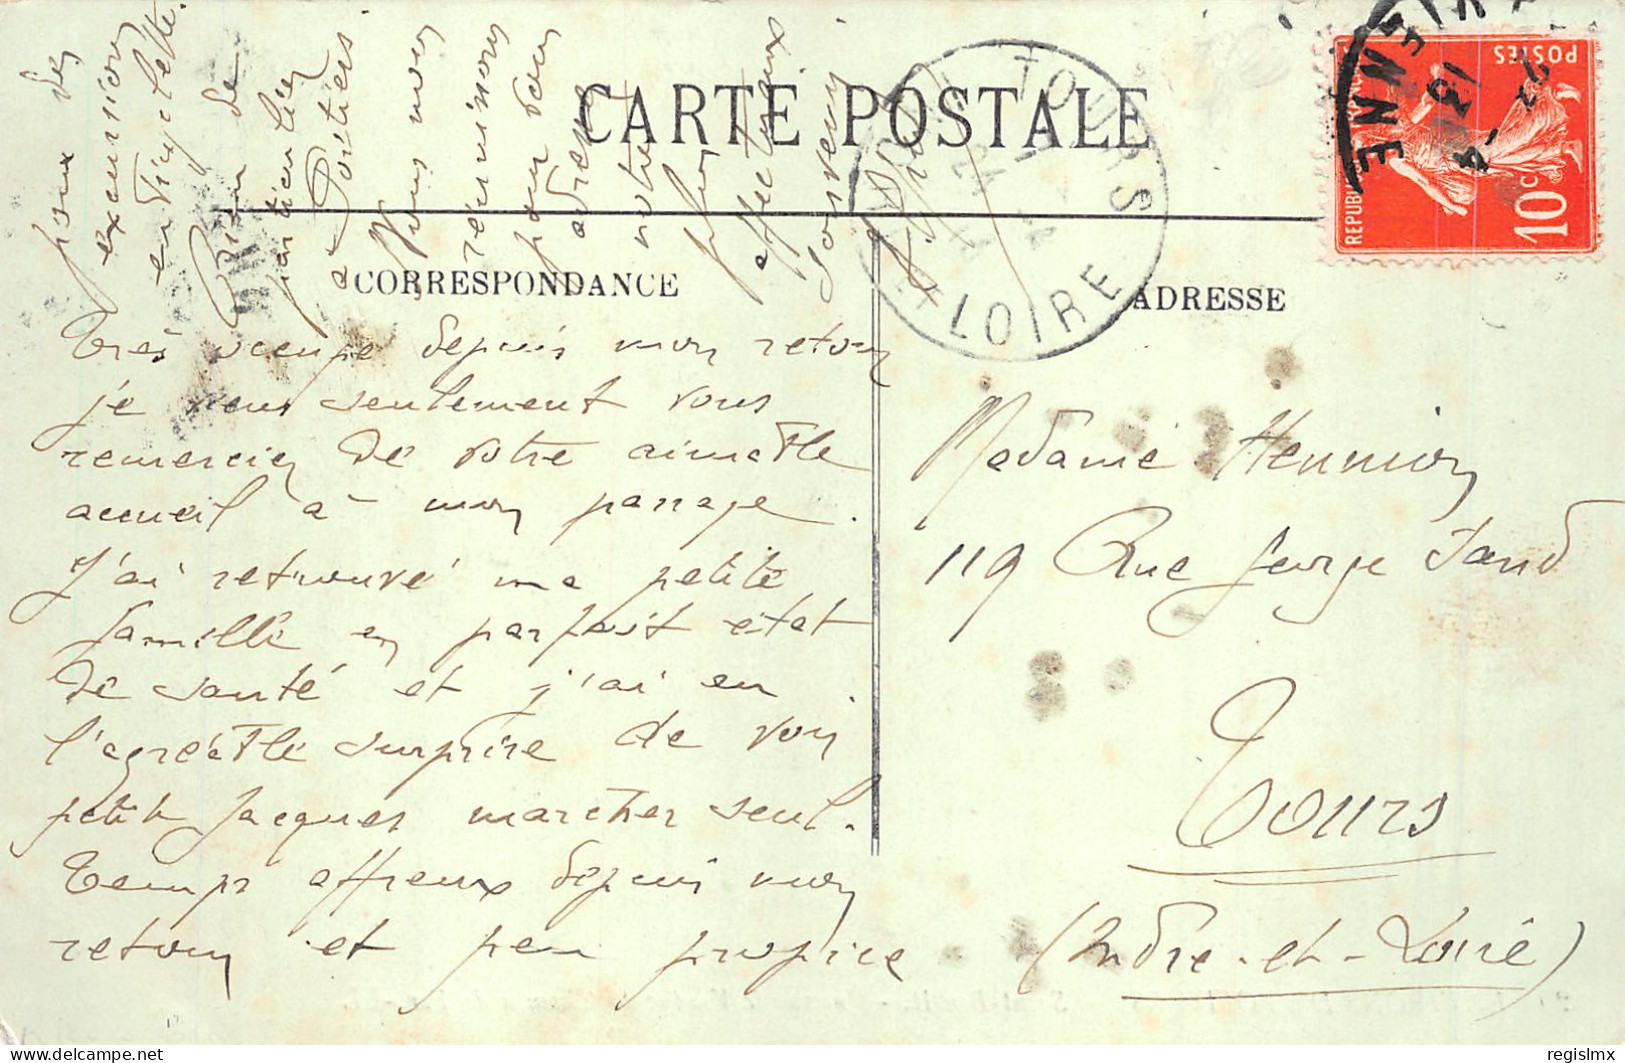 CARTE POSTALE
CORRESPONDANCE
ADRESSE
Très occupé depuis mon retour
je veux seulement vous
remercier de votre aimable
accueil à mon passage.
J'ai retrouvé ma petite
famille en parfait état
de santé et j'ai eu
l'agréable surprise de voir
petit Jacques marcher seul.
Temps affreux depuis mon
retour et peu propice
pour des
excursions
en bicyclette.
Rien de
particulier
à Poitiers
Nous nous
réunissons
pour vous
adresser
notre
plus
affectueux
souvenir
Madame Hennion
119 Rue George Sand
Tours
(Indre-et-Loire)
TOURS
LOIRE
ENNE
13
7-4
POSTES
10c
regislmx